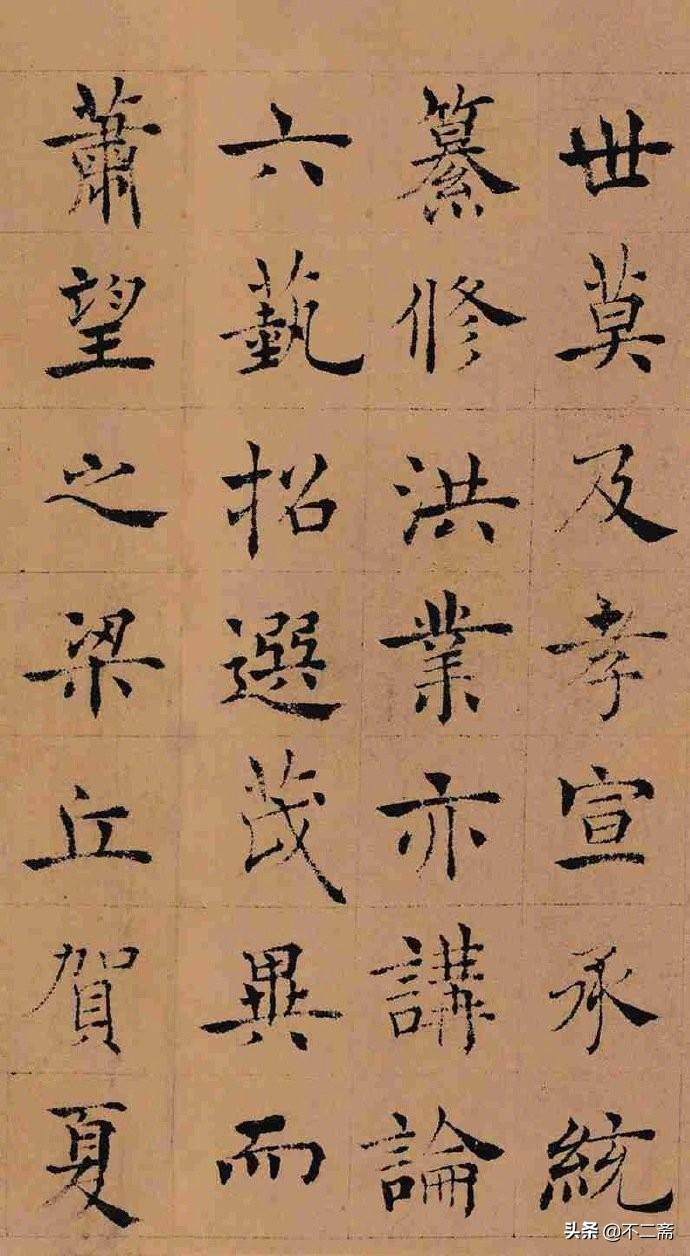 世莫及孝宣承統
纂修洪業亦講論
六藝招選茂異而
蕭望之梁丘賀夏
头条 @不二斋